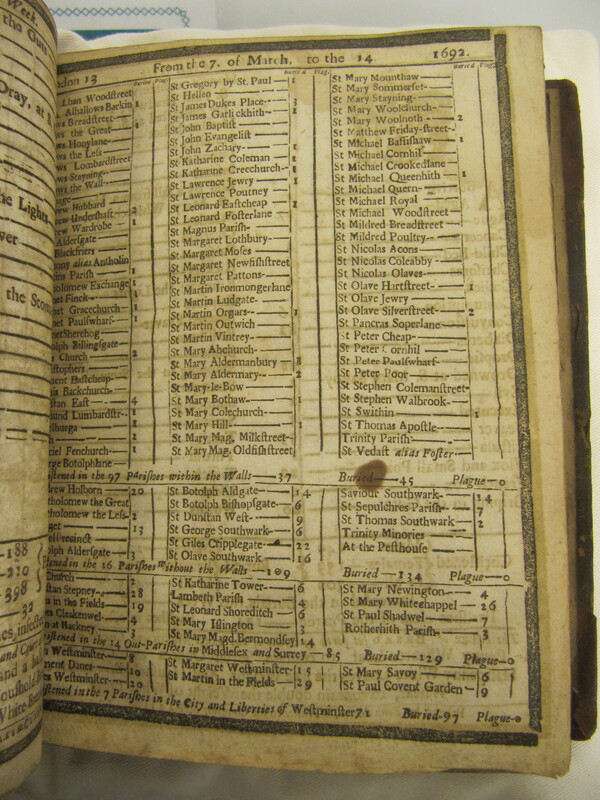 Week
the Guts
Dray, at S
he Lights
wer
the Stom
-188
-219
-398
32
es, infected
and Court
and a ha
White-Bread
ndon 13 From the 7. of March, to the 14 1692.
Buried Plag. Buried Plag. Buried Plag.
lhan Woodstreet
Alhallows Barkin 1
ws Breadstreet
ws the Great 1
ws Honylane
ws the Less
ws Lombardstreet
ws Stayning
ws the Wall
age
rew Hubbard
rew Undershaft 2
rew Wardrobe 1
Aldersgate
Blackfriers
ony alias Antholin
ins Parish
tholomew Exchange 1
et Finck
et Gracechurch 1
et Paulswharf 1
et Sherehog
olph Billingsgate
s Church 2
stophers
ent Eastcheap
is Backchurch
stan East 4
und Lumbardstr. 1
lburga 1
riel Fenchurch 1
rge Botolphlane
St Gregory by St. Paul 1
St Hellen
St James Dukes Place 3
St James Garlickhith 1
St John Baptist
St John Evangelist
St John Zachary 1
St Katharine Coleman 1
St Katharine Creechurch 1
St Lawrence Jewry 1
St Lawrence Poutney
St Leonard Eastcheap 1
St Leonard Fosterlane
St Magnus Parish
St Margaret Lothbury
St Margaret Moses
St Margaret Newfishstreet
St Margaret Pattons
St Martin Ironmongerlane
St Martin Ludgate
St Martin Orgars 1
St Martin Outwich
St Martin Vintrey
St Mary Abchurch
St Mary Aldermanbury 8
St Mary Aldermary 2
St Mary-le-Bow
St Mary Bothaw 1
St Mary Colechurch
St Mary Hill 1
St Mary Mag. Milkstreet
St Mary Mag. Oldfishstreet
St Mary Mounthaw
St Mary Sommerset
St Mary Stayning
St Mary Woolchurch
St Mary Woolnoth 2
St Matthew Friday-street
St Michael Bassishaw 1
St Michael Cornhil
St Michael Crookedlane
St Michael Queenhith 1
St Michael Quern
St Michael Royal
St Michael Woodstreet
St Mildred Breadstreet
St Mildred Poultry
St Nicolas Acons
St Nicolas Coleabby
St Nicolas Olaves
St Olave Hartstreet 1
St Olave Jewry
St Olave Silverstreet 2
St Pancras Soperlane
St Peter Cheap
St Peter Cornhil
St Peter Paulswharf
St Peter Poor
St Stephen Colemanstreet
St Stephen Walbrook
St Swithin 1
St Thomas Apostle
Trinity Parish
St Vedast alias Foster
stened in the 97 Parishes within the Walls 37 Buried 45 Plague 0
rew Holborn 20
tholomew the Great
tholomew the Less 2
get 13
olph Aldersgate 3
St Botolph Aldgate 14
St Botolph Bishopsgate 6
St Dunstan West 9
St George Southwark 6
St Giles Cripplegate 22
St Olave Southwark 16
Saviour Southwark 14
St Sepulchres Parish 7
St Thomas Southwark 2
Trinity Minories
At the Pesthouse
stened in the 16 Parishes without the Walls 109 Buried 134 Plague 0
Church 2
stan Stepney 28
es in the Fields 19
es Clerkenwel 4
n at Hackney 3
St Katharine Tower 6
Lambeth Parish 4
St Leonard Shoreditch 6
St Mary Islington 3
St Mary Magd. Bermondsey 14
St Mary Newington 4
St Mary Whitechappel 26
St Paul Shadwel 7
Rotherhith Parish 3
istened in the 14 Out-Parishes in Middlesex and Surrey 85 Buried 129 Plague 0
s Westminster 8
ment Danes 10
es Westminster 20
St Margaret Westminster 15
St Martin in the Fields 29
St Mary Savoy 6
St Paul Covent Garden 9
stened in the 7 Parishes in the City and Liberties of Westminster 71 Buried 97 Plague 0